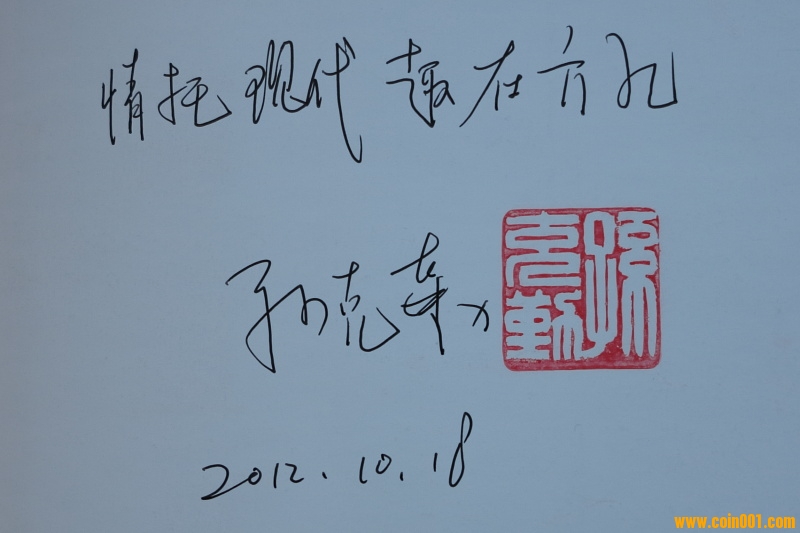 情托现代 趣在方孔
孙克勤
孫克勤
2012.10.18
www.coin001.com